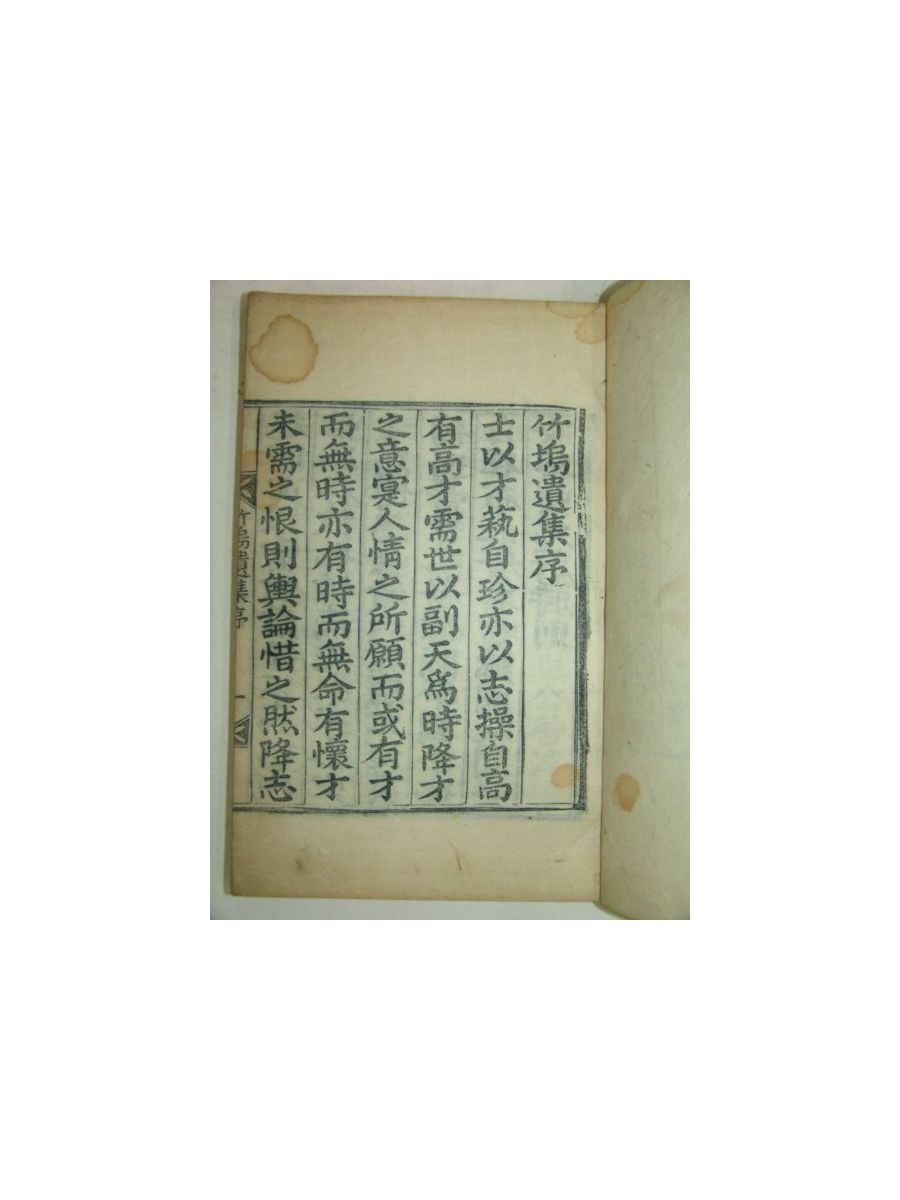 竹塢遺集序
士以才蓺自珍亦以志操自高
有高才需世以副天爲時降才
之意寔人情之所願而或有才
而無時亦有時而無命有懷才
未需之恨則輿論惜之然降志
竹塢遺集序 一